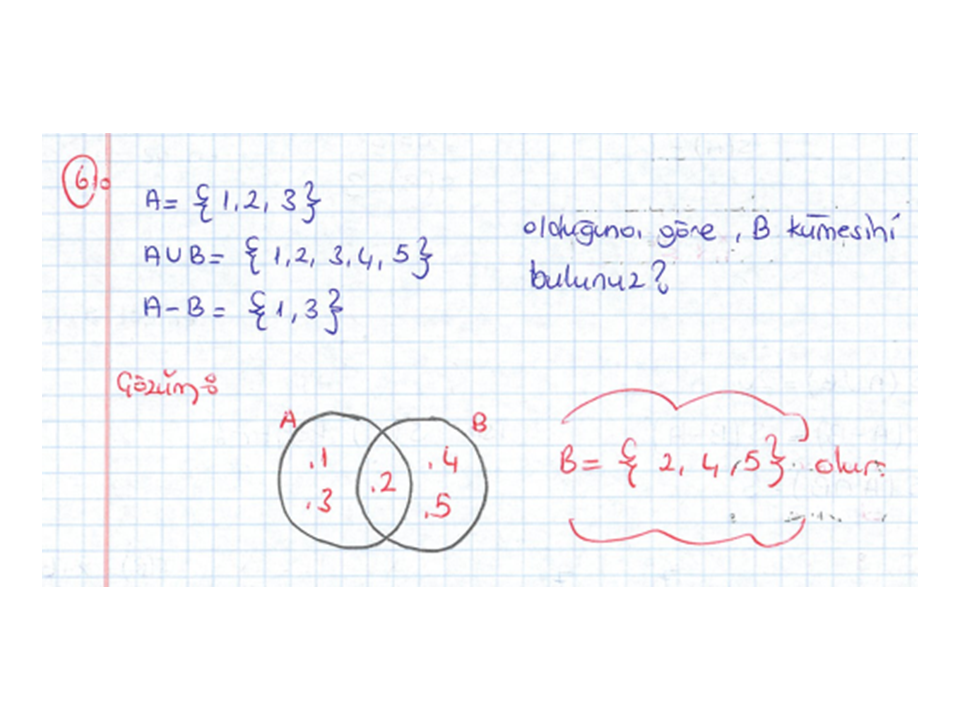 6)
A = { 1, 2, 3 }
A ∪ B = { 1, 2, 3, 4, 5 }
A - B = { 1, 3 }
olduğuna göre, B kümesini
bulunuz?
Çözüm:
A B
.1 .4
.2
.3 .5
B = { 2, 4, 5 } olur.